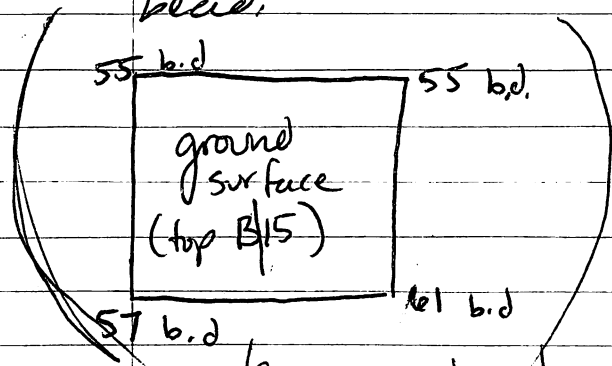 55 b.d
55 b.d.
ground
surface
(top B|15)
57 b.d
61 b.d